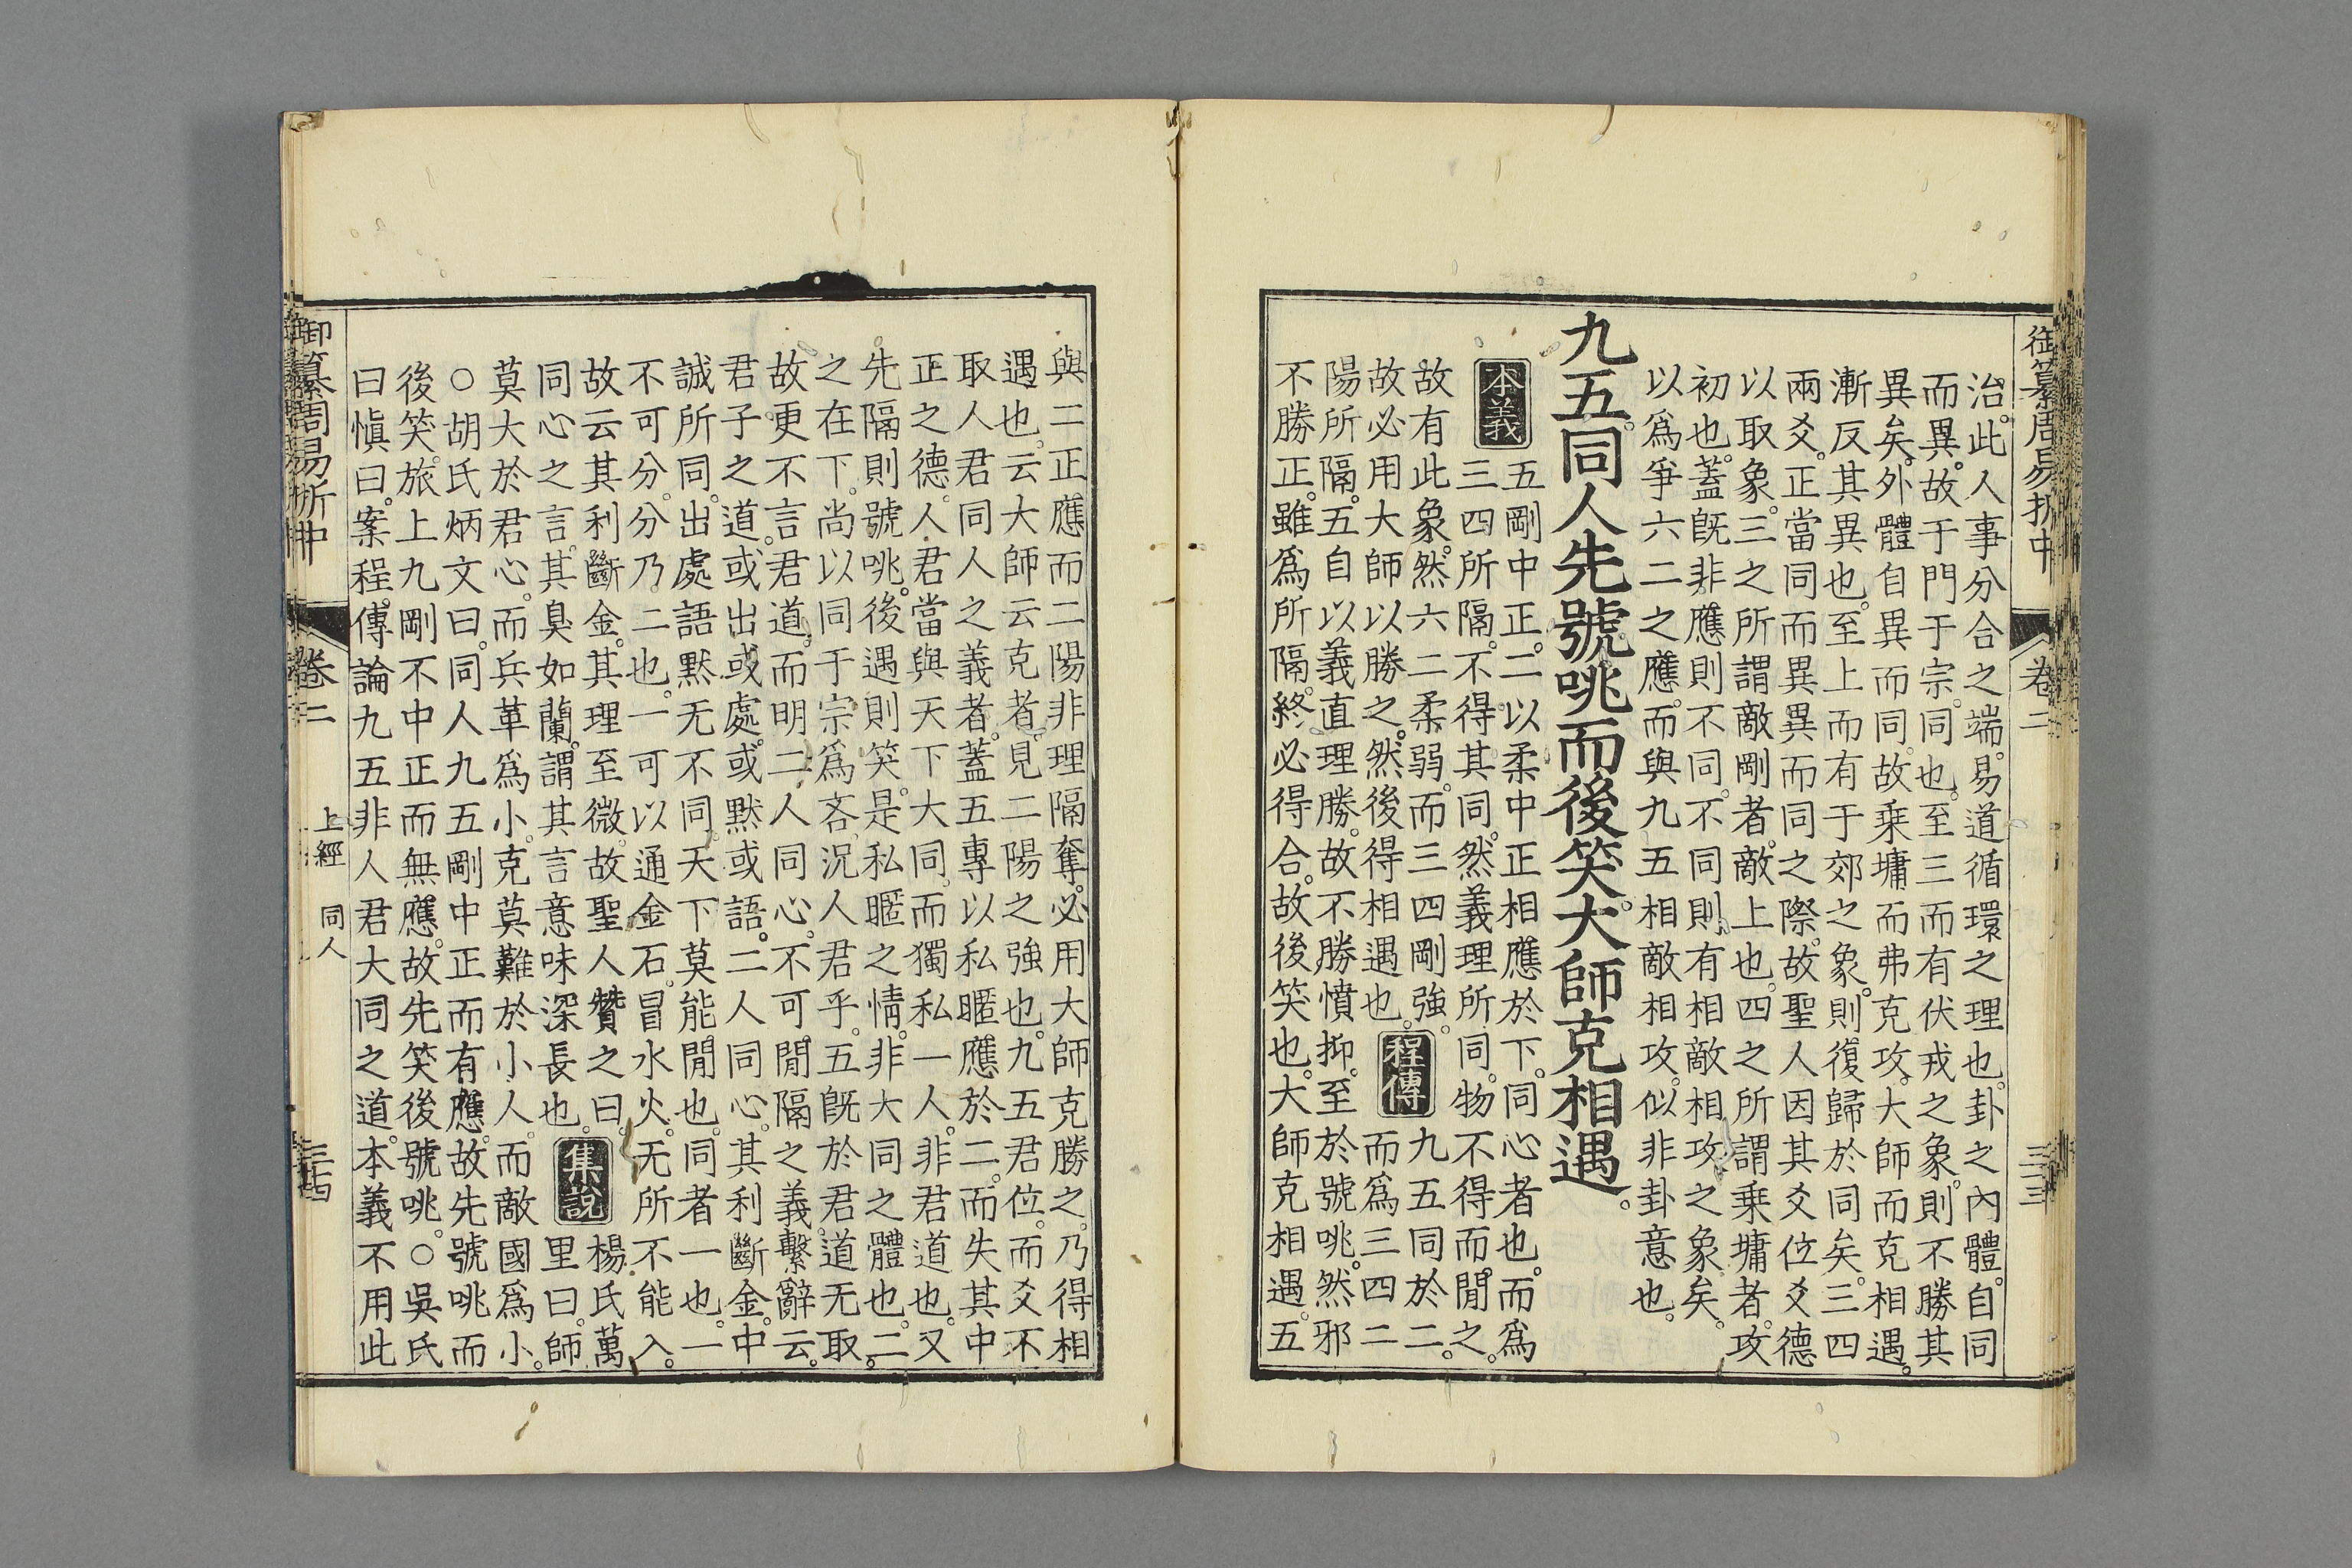 御纂周易折中 卷二 三三
治。此人事分合之端。易道循環之理也。卦之內體。自同
而異。故于門于宗。同也。至三而有伏戎之象。則不勝其
異矣。外體自異而同。故乘墉而弗克攻。大師而克相遇。
漸反其異也。至上而有于郊之象。則復歸於同矣。三四
兩爻。正當同而異異而同之際。故聖人因其爻位爻德
以取象。三之所謂敵剛者。敵上也。四之所謂乘墉者。攻
初也。蓋既非應則不同。不同則有相敵相攻之象矣。
以爲爭六二之應。而與九五相敵相攻。似非卦意也。
九五。同人先號咷而後笑。大師克相遇。
本義
五剛中正。二以柔中正相應於下。同心者也。而爲
三四所隔。不得其同。然義理所同。物不得而閒之。
故有此象。然六二柔弱。而三四剛強。
故必用大師以勝之。然後得相遇也。
程傳
九五同於二。
而爲三四二
陽所隔。五自以義直理勝。故不勝憤抑。至於號咷。然邪
不勝正。雖爲所隔。終必得合。故後笑也。大師克相遇。五
與二正應而二陽非理隔奪。必用大師克勝之。乃得相
遇也。云大師云克者。見二陽之強也。九五君位。而爻不
取人君同人之義者。蓋五專以私暱應於二。而失其中
正之德。人君當與天下大同。而獨私一人。非君道也。又
先隔則號咷。後遇則笑。是私暱之情。非大同之體也。二
之在下。尚以同于宗爲吝。況人君乎。五既於君道无取。
故更不言君道。而明二人同心。不可閒隔之義。繫辭云。
君子之道。或出或處。或默或語。二人同心。其利斷金。中
誠所同。出處語默无不同。天下莫能閒也。同者一也。一
不可分。分乃二也。一可以通金石。冒水火。无所不能入。
故云其利斷金。其理至微。故聖人贊之曰。
同心之言。其臭如蘭。謂其言意味深長也。
集說
楊氏萬
里曰。師
莫大於君心。而兵革爲小。克莫難於小人。而敵國爲小。
○胡氏炳文曰。同人九五剛中正而有應。故先號咷而
後笑。旅上九剛不中正而無應。故先笑後號咷。○吳氏
曰愼曰。案程傳論九五非人君大同之道。本義不用此
御纂周易折中 卷二 上經 同人 三四